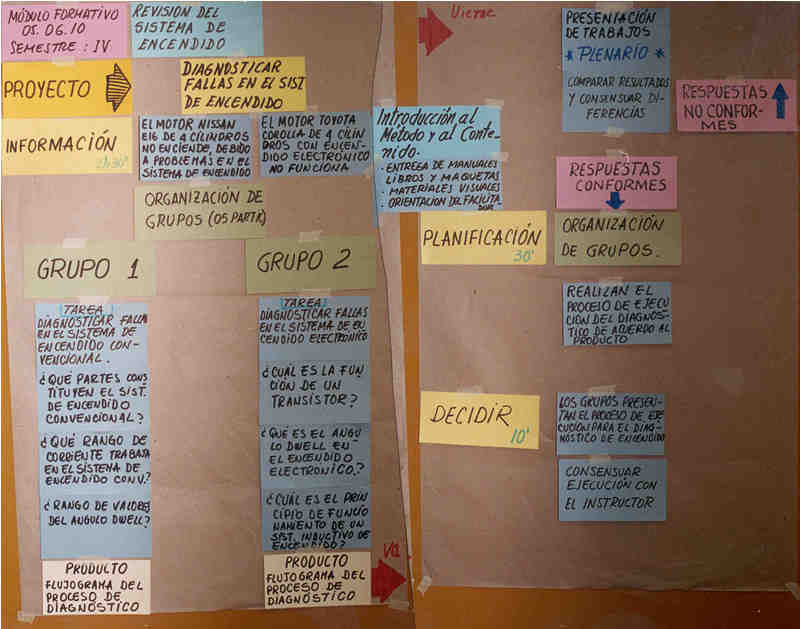 MÓDULO FORMATIVO
05.06.10
SEMESTRE : IV
REVISION DEL
SISTEMA DE
ENCENDIDO
PROYECTO
DIAGNOSTICAR
FALLAS EN EL SIST.
DE ENCENDIDO
INFORMACIÓN
2h30'
EL MOTOR NISSAN
E16 DE 4 CILINDROS
NO ENCIENDE, DEBIDO
A PROBLEMAS EN EL
SISTEMA DE ENCENDIDO
EL MOTOR TOYOTA
COROLLA DE 4 CILIN
DROS CON ENCEN-
DIDO ELECTRÓNICO
NO FUNCIONA
Introducción al
Método y al Conte-
nido.
. ENTREGA DE MANUALES
LIBROS Y MAQUETAS
. MATERIALES VISUALES
. ORIENTACION DEL FACILITA
DOR
ORGANIZACIÓN DE
GRUPOS (05 PARTIC)
GRUPO 1
(TAREA)
DIAGNOSTICAR FALLAS
EN EL SISTEMA DE
ENCENDIDO CON-
VENCIONAL.
¿QUÉ PARTES CONS
TITUYEN EL SIST.
DE ENCENDIDO
CONVENCIONAL?
¿QUÉ RANGO DE
CORRIENTE TRABAJA
EN EL SISTEMA DE
ENCENDIDO CONV.?
¿RANGO DE VALORES
DEL ANGULO DWELL?
PRODUCTO
FLUJOGRAMA DEL
PROCESO DE
DIAGNÓSTICO
GRUPO 2
(TAREA)
DIAGNOSTICAR FALLAS
EN EL SISTEMA DE EN
CENDIDO ELECTRÓNICO
¿CUÁL ES LA FUN
CIÓN DE UN
TRANSISTOR?
¿QUÉ ES EL ANGU
LO DWELL EN
EL ENCENDIDO
ELECTRONICO?
¿CUÁL ES EL PRIN
CIPIO DE FUNCIO
NAMIENTO DE UN
SIST. INDUCTIVO DE
ENCENDIDO?
PRODUCTO
FLUJOGRAMA DEL
PROCESO DE
DIAGNÓSTICO
Va
Viene
PRESENTACIÓN
DE TRABAJOS
* PLENARIO *
COMPARAR RESULTADOS
Y CONSENSUAR DI-
FERENCIAS
RESPUESTAS
NO CONFOR-
MES
RESPUESTAS
CONFORMES
PLANIFICACIÓN
30'
ORGANIZACIÓN
DE GRUPOS.
REALIZAN EL
PROCESO DE EJECU
CIÓN DEL DIAGNOS-
TICO DE ACUERDO AL
PRODUCTO
DECIDIR
10'
LOS GRUPOS PRESEN-
TAN EL PROCESO DE EJE
CUCIÓN PARA EL DIAG-
NOSTICO DE ENCENDIDO
CONSENSUAR
EJECUCIÓN CON
EL INSTRUCTOR